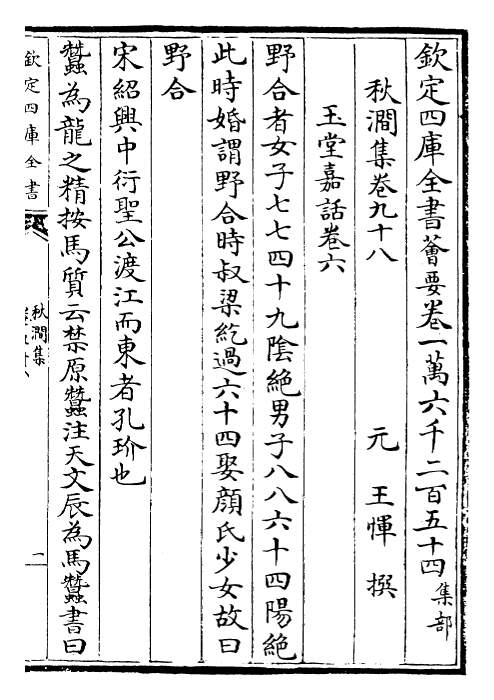 欽定四庫全書薈要卷一萬六千二百五十四集部
秋澗集卷九十八 元 王惲 撰
玉堂嘉話卷六
野合者女子七七四十九陰絶男子八八六十四陽絶
此時婚謂野合時叔梁紇過六十四娶顏氏少女故曰
野合
宋紹興中衍聖公渡江而東者孔玠也
蠶為龍之精按馬質云禁原蠶注天文辰為馬蠶書曰
欽定四庫全書
秋澗集
一